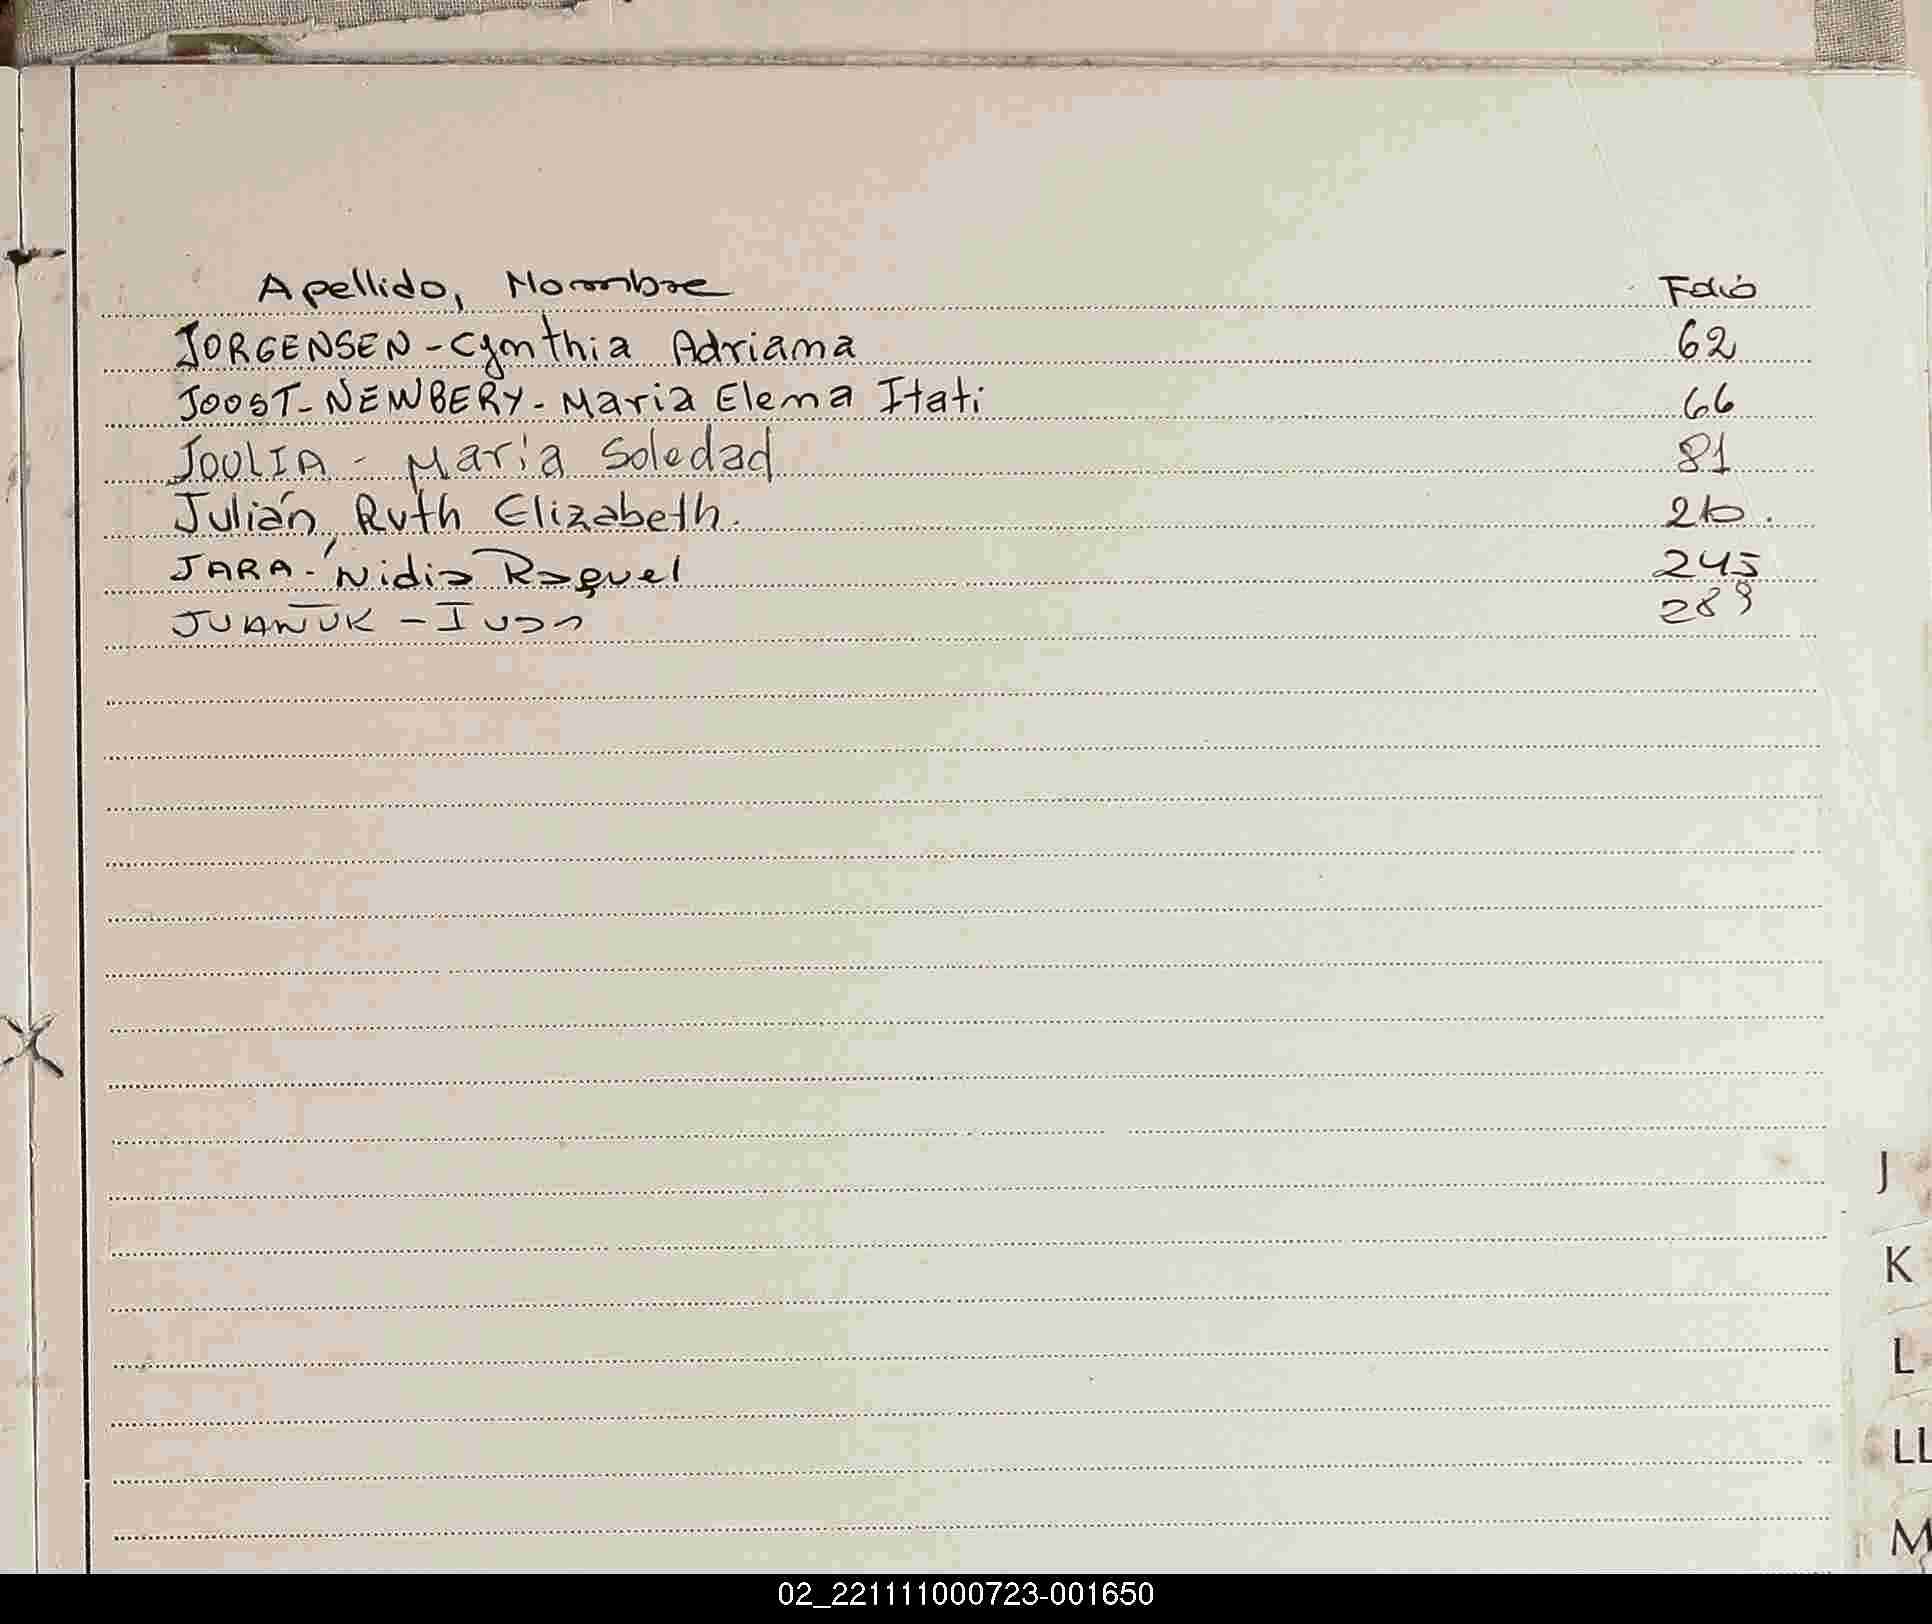 Apellido, Nombre Folio
JORGENSEN - Cynthia Adriana 62
JOOST-NEWBERY - Maria Elena Itati 66
JOULIA - Maria Soledad 81
Julián, Ruth Elizabeth. 210.
JARA - Nidia Raquel 245
JUAÑUK - Ivan 289
J
K
L
LL
M
02_221111000723-001650